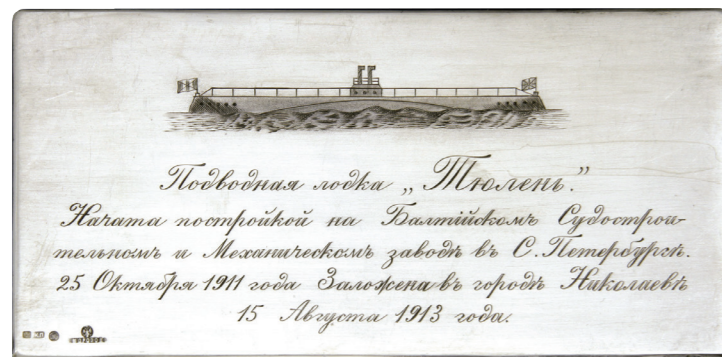 Подводная лодка „Тюлень.”
Начата постройкой на Балтійскомъ Судострои-
тельномъ и Механическомъ заводѣ въ С. Петербургѣ.
25 Октября 1911 года Заложена въ городѣ Николаевѣ
15 Августа 1913 года.